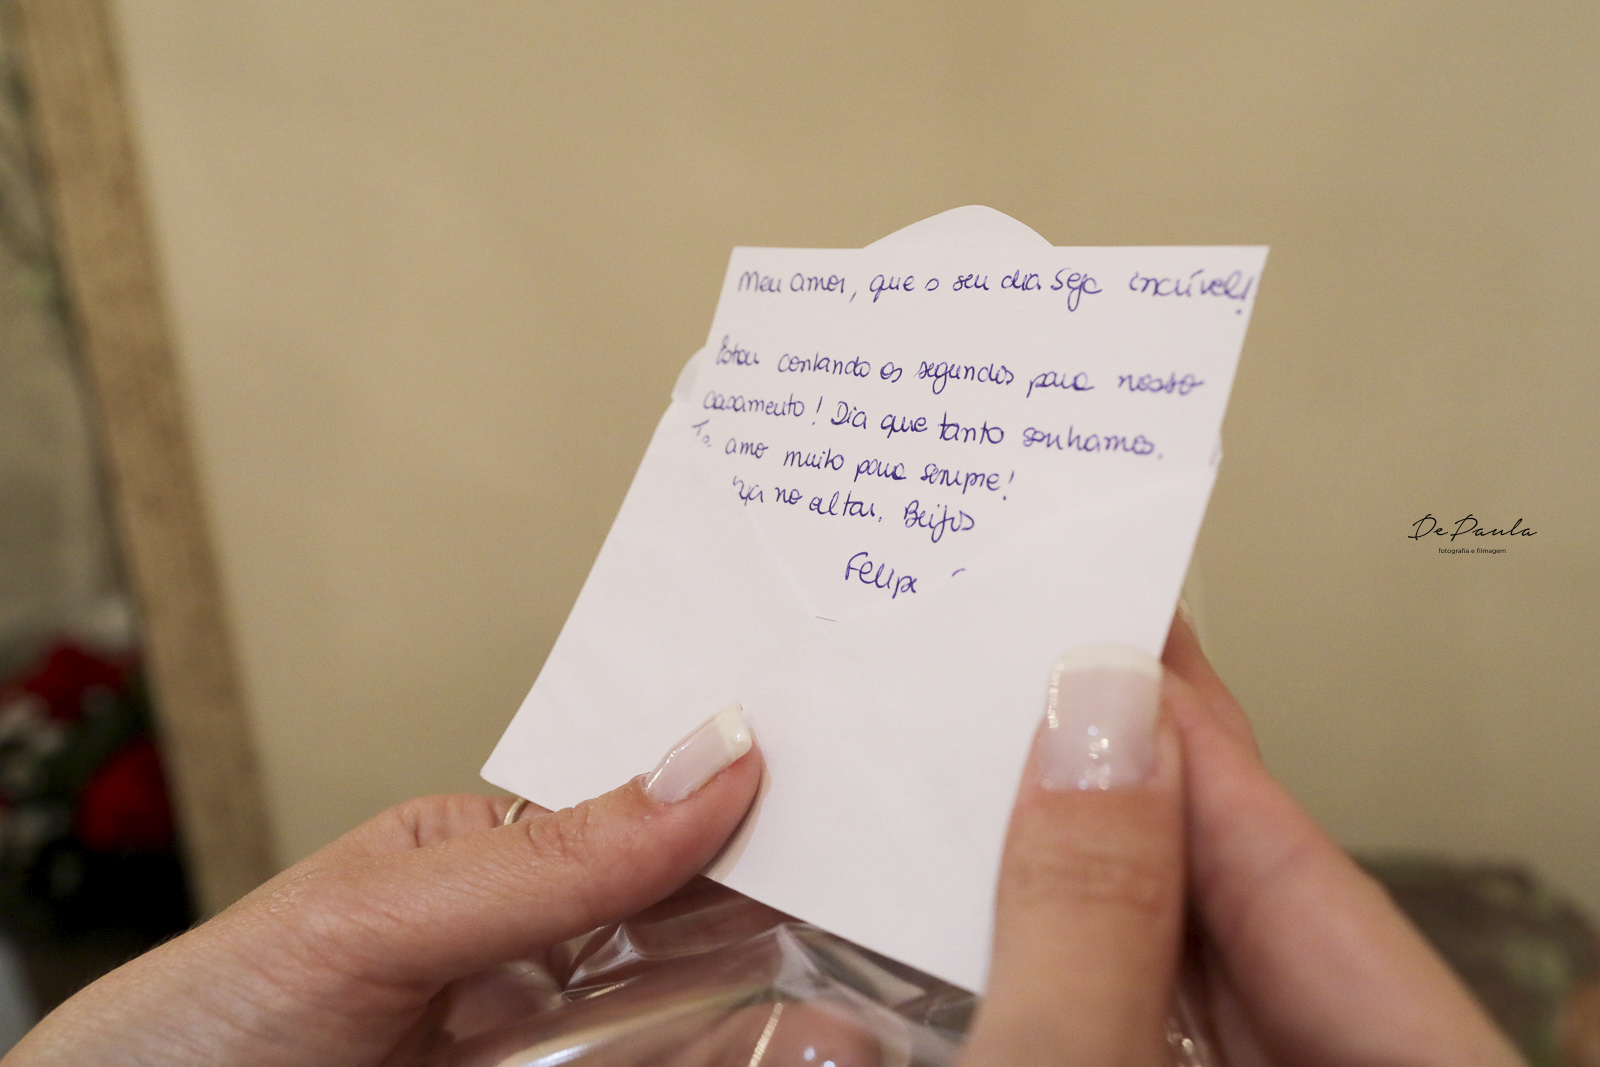 Meu amor, que o seu dia seja incrível!
Estou contando os segundos para nosso
casamento! Dia que tanto sonhamos.
Te amo muito para sempre!
no altar. Beijos
Felipe
DePaula
fotografia e filmagem